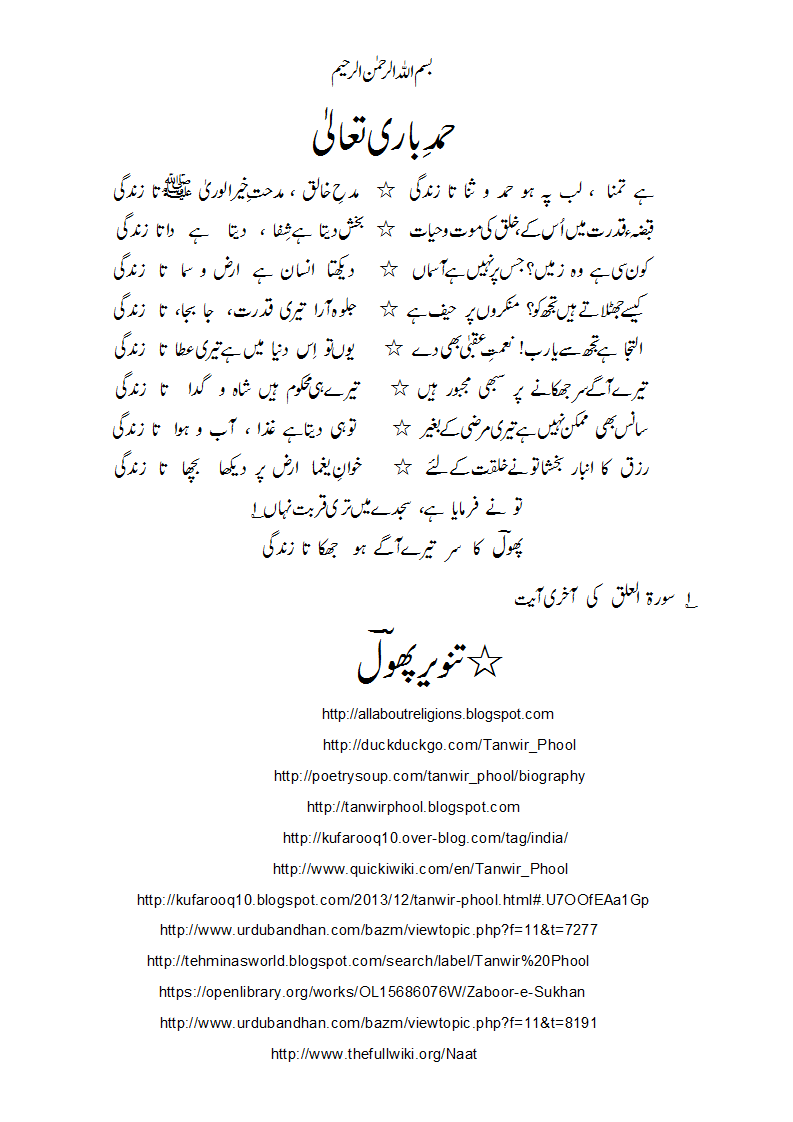 بسم اللہ الرحمٰن الرحیم
حمدِ باری تعالیٰ
ہے تمنا ، لب پہ ہو حمد و ثنا تا زندگی ☆ مدحِ خالق ، مدحتِ خیرالوریٰ ﷺ تا زندگی
قبضہء قدرت میں اُس کے، خلق کی موت و حیات ☆ بخش دیتا ہے شِفا ، دیتا ہے دوا تا زندگی
کون سی ہے وہ زمیں؟ جس پر نہیں ہے آسماں ☆ دیکھتا انسان ہے ارض و سما تا زندگی
کیسے جھٹلاتے ہیں تجھ کو؟ منکروں پر حیف ہے ☆ جلوہ آرا تیری قدرت، جا بجا، تا زندگی
التجا ہے تجھ سے یارب! نعمتِ عقبٰی بھی دے ☆ یوں تو اِس دنیا میں ہے تیری عطا تا زندگی
تیرے آگے سر جھکانے پر سبھی مجبور ہیں ☆ تیرے ہی محکوم ہیں شاہ و گدا تا زندگی
سانس بھی ممکن نہیں ہے تیری مرضی کے بغیر ☆ تو ہی دیتا ہے غذا ، آب و ہوا تا زندگی
رزق کا انبار بخشا تو نے خلقت کے لئے ☆ خوانِ یغما ارض پر دیکھا بچھا تا زندگی
تو نے فرمایا ہے، سجدے میں تری قربت نہاں ۱؎
پھولؔ کا سر تیرے آگے ہو جھکا تا زندگی
۱؎ سورۃ العلق کی آخری آیت
☆ تنویر پھولؔ
http://allaboutreligions.blogspot.com
http://duckduckgo.com/Tanwir_Phool
http://poetrysoup.com/tanwir_phool/biography
http://tanwirphool.blogspot.com
http://kufarooq10.over-blog.com/tag/india/
http://www.quickiwiki.com/en/Tanwir_Phool
http://kufarooq10.blogspot.com/2013/12/tanwir-phool.html#.U7OOfEAa1Gp
http://www.urdubandhan.com/bazm/viewtopic.php?f=11&t=7277
http://tehminasworld.blogspot.com/search/label/Tanwir%20Phool
https://openlibrary.org/works/OL15686076W/Zaboor-e-Sukhan
http://www.urdubandhan.com/bazm/viewtopic.php?f=11&t=8191
http://www.thefullwiki.org/Naat